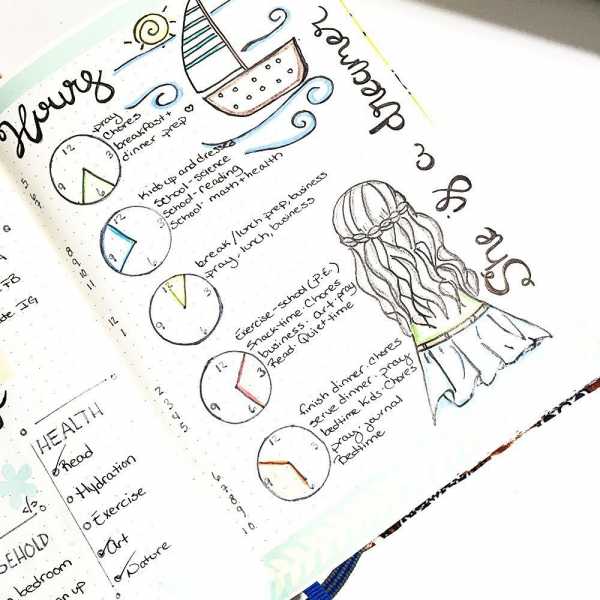 Hours
She is a dreamer
pray
chores
breakfast +
dinner prep
5
12
3
6
9
Kids up and dressed
school - science
school - reading
school - math + health
8
9
10
11
12
3
6
9
break / lunch prep, business
pray - lunch, business
12
1
12
3
6
9
Exercise - school (P.E.)
Snack-time Chores
business - art - pray
Read - Quiet-time
2
3
4
5
12
3
6
9
finish dinner - chores
serve dinner - pray
bedtime kids - Chores
pray - journal
Bedtime
6
7
8
9
10
12
3
6
9
HEALTH
Read
Hydration
Exercise
Art
Nature
bedroom
FB
IG